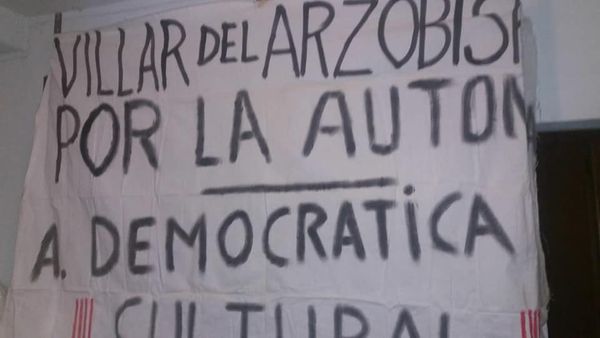 VILLAR DEL ARZOBISP
POR LA AUTON
A. DEMOCRATICA
CULTURAL